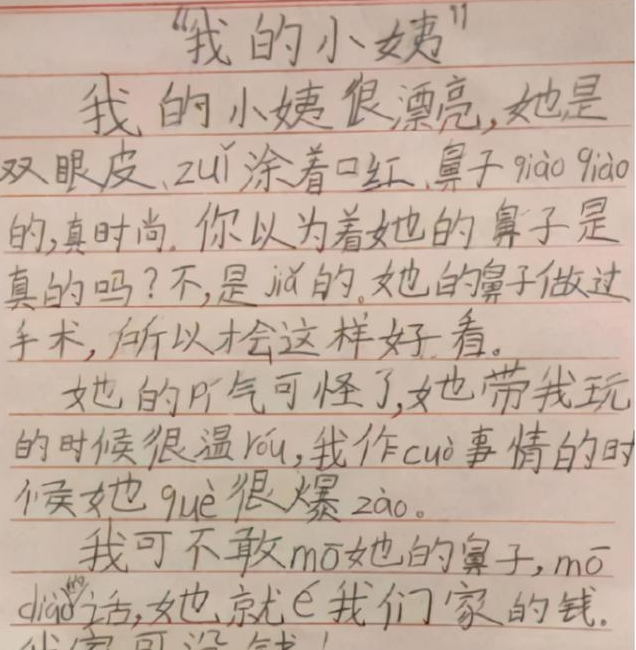 “我的小姨”
我的小姨很漂亮,她是
双眼皮、zuǐ涂着口红、鼻子qiào qiào
的,真时尚.你以为着她的鼻子是
真的吗?不,是jiǎ的。她的鼻子做过
手术,所以才会这样好看。
她的pí气可怪了,她带我玩
的时候很温róu,我作cuò事情的时
候她què很爆zào。
我可不敢mō她的鼻子,mō
diào的话,她就é我们家的钱.
我家可没钱!